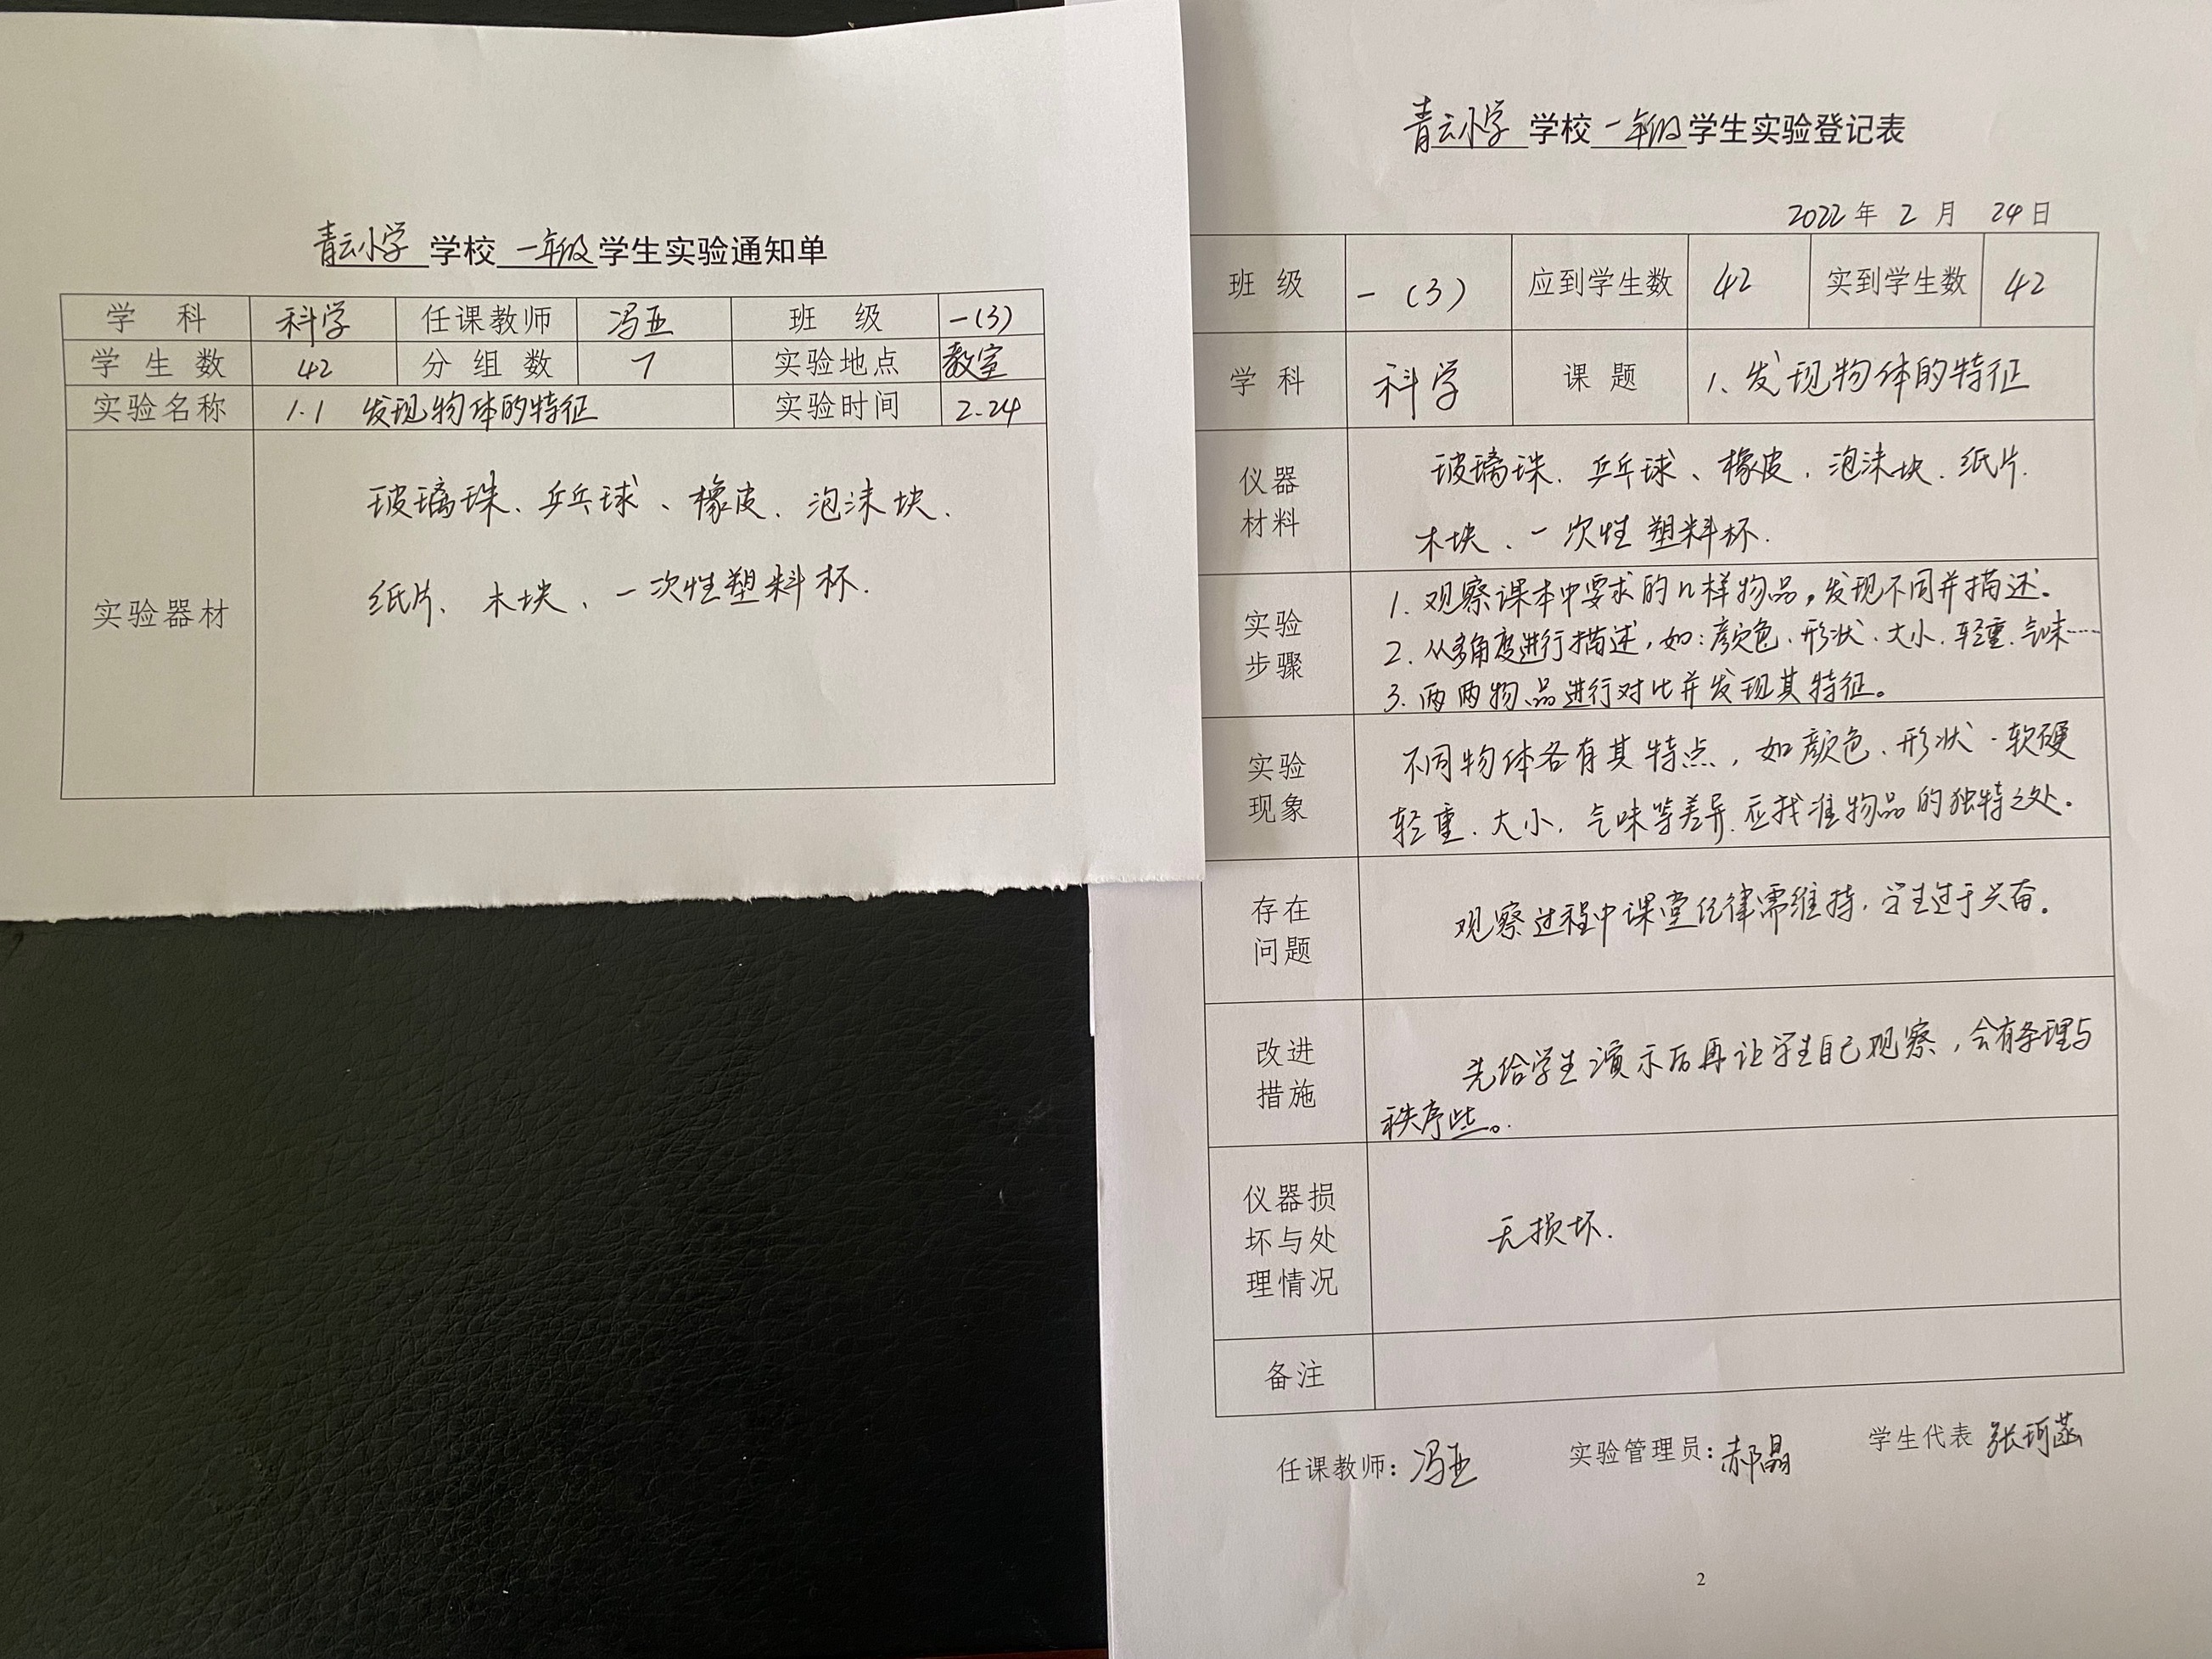 青云小学 学校 一年级 学生实验通知单
学 科 科学 任课教师 冯亚 班 级 一(3)
学 生 数 42 分 组 数 7 实验地点 教室
实验名称 1.1 发现物体的特征 实验时间 2.24
实验器材
玻璃珠、乒乓球、橡皮、泡沫块、
纸片、木块、一次性塑料杯.
青云小学 学校 一年级 学生实验登记表
2022 年 2 月 24 日
班 级 一(3) 应到学生数 42 实到学生数 42
学 科 科学 课 题 1. 发现物体的特征
仪器
材料
玻璃珠、乒乓球、橡皮、泡沫块、纸片.
木块、一次性塑料杯.
实验
步骤
1. 观察课本中要求的几样物品,发现不同并描述。
2. 从多角度进行描述,如:颜色、形状、大小、轻重、气味……
3. 两两物品进行对比并发现其特征。
实验
现象
不同物体各有其特点,如颜色、形状、软硬
轻重、大小、气味等差异.应找准物品的独特之处。
存在
问题
观察过程中课堂纪律需维持,学生过于兴奋。
改进
措施
先给学生演示后再让学生自己观察,会有条理与
秩序些。
仪器损
坏与处
理情况
无损坏.
备注
任课教师:冯亚 实验管理员:郝晶 学生代表 张珂菡
2